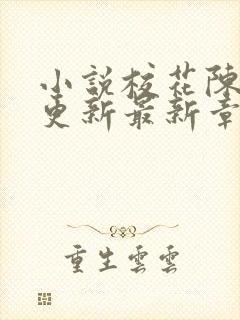 小說校花陳
更新最新章
重生雲雲